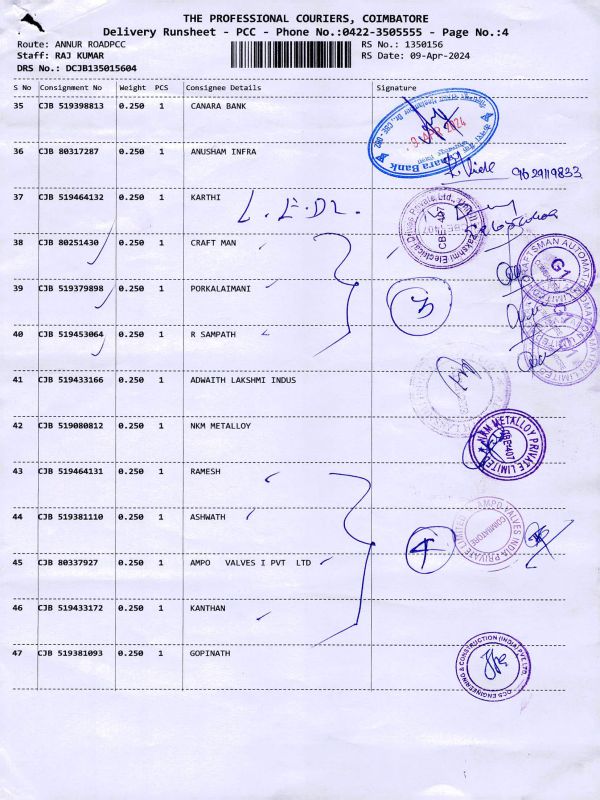 THE PROFESSIONAL COURIERS, COIMBATORE
Delivery Runsheet - PCC - Phone No.:0422-3505555 - Page No.:4
Route: ANNUR ROADPCC RS No.: 1350156
Staff: RAJ KUMAR RS Date: 09-Apr-2024
DRS No.: DCJB135015604
S No Consignment No Weight PCS Consignee Details Signature
35 CJB 519398813 0.250 1 CANARA BANK
9 APR 2024
Canara Bank
36 CJB 80317287 0.250 1 ANUSHAM INFRA
9629119833
37 CJB 519464132 0.250 1 KARTHI L.E.D2.
38 CJB 80251430 0.250 1 CRAFT MAN
CRAFTSMAN AUTOMATION LIMITED
G1
39 CJB 519379898 0.250 1 PORKALAIMANI
3
40 CJB 519453064 0.250 1 R SAMPATH
41 CJB 519433166 0.250 1 ADWAITH LAKSHMI INDUS
42 CJB 519080812 0.250 1 NKM METALLOY
NKM METALLOY PRIVATE LIMITED
43 CJB 519464131 0.250 1 RAMESH
44 CJB 519381110 0.250 1 ASHWATH
4
AMPO VALVES INDIA PRIVATE LIMITED
COIMBATORE
45 CJB 80337927 0.250 1 AMPO VALVES I PVT LTD
46 CJB 519433172 0.250 1 KANTHAN
47 CJB 519381093 0.250 1 GOPINATH
ENGINEERING & CONSTRUCTION (INDIA) PVT. LTD.